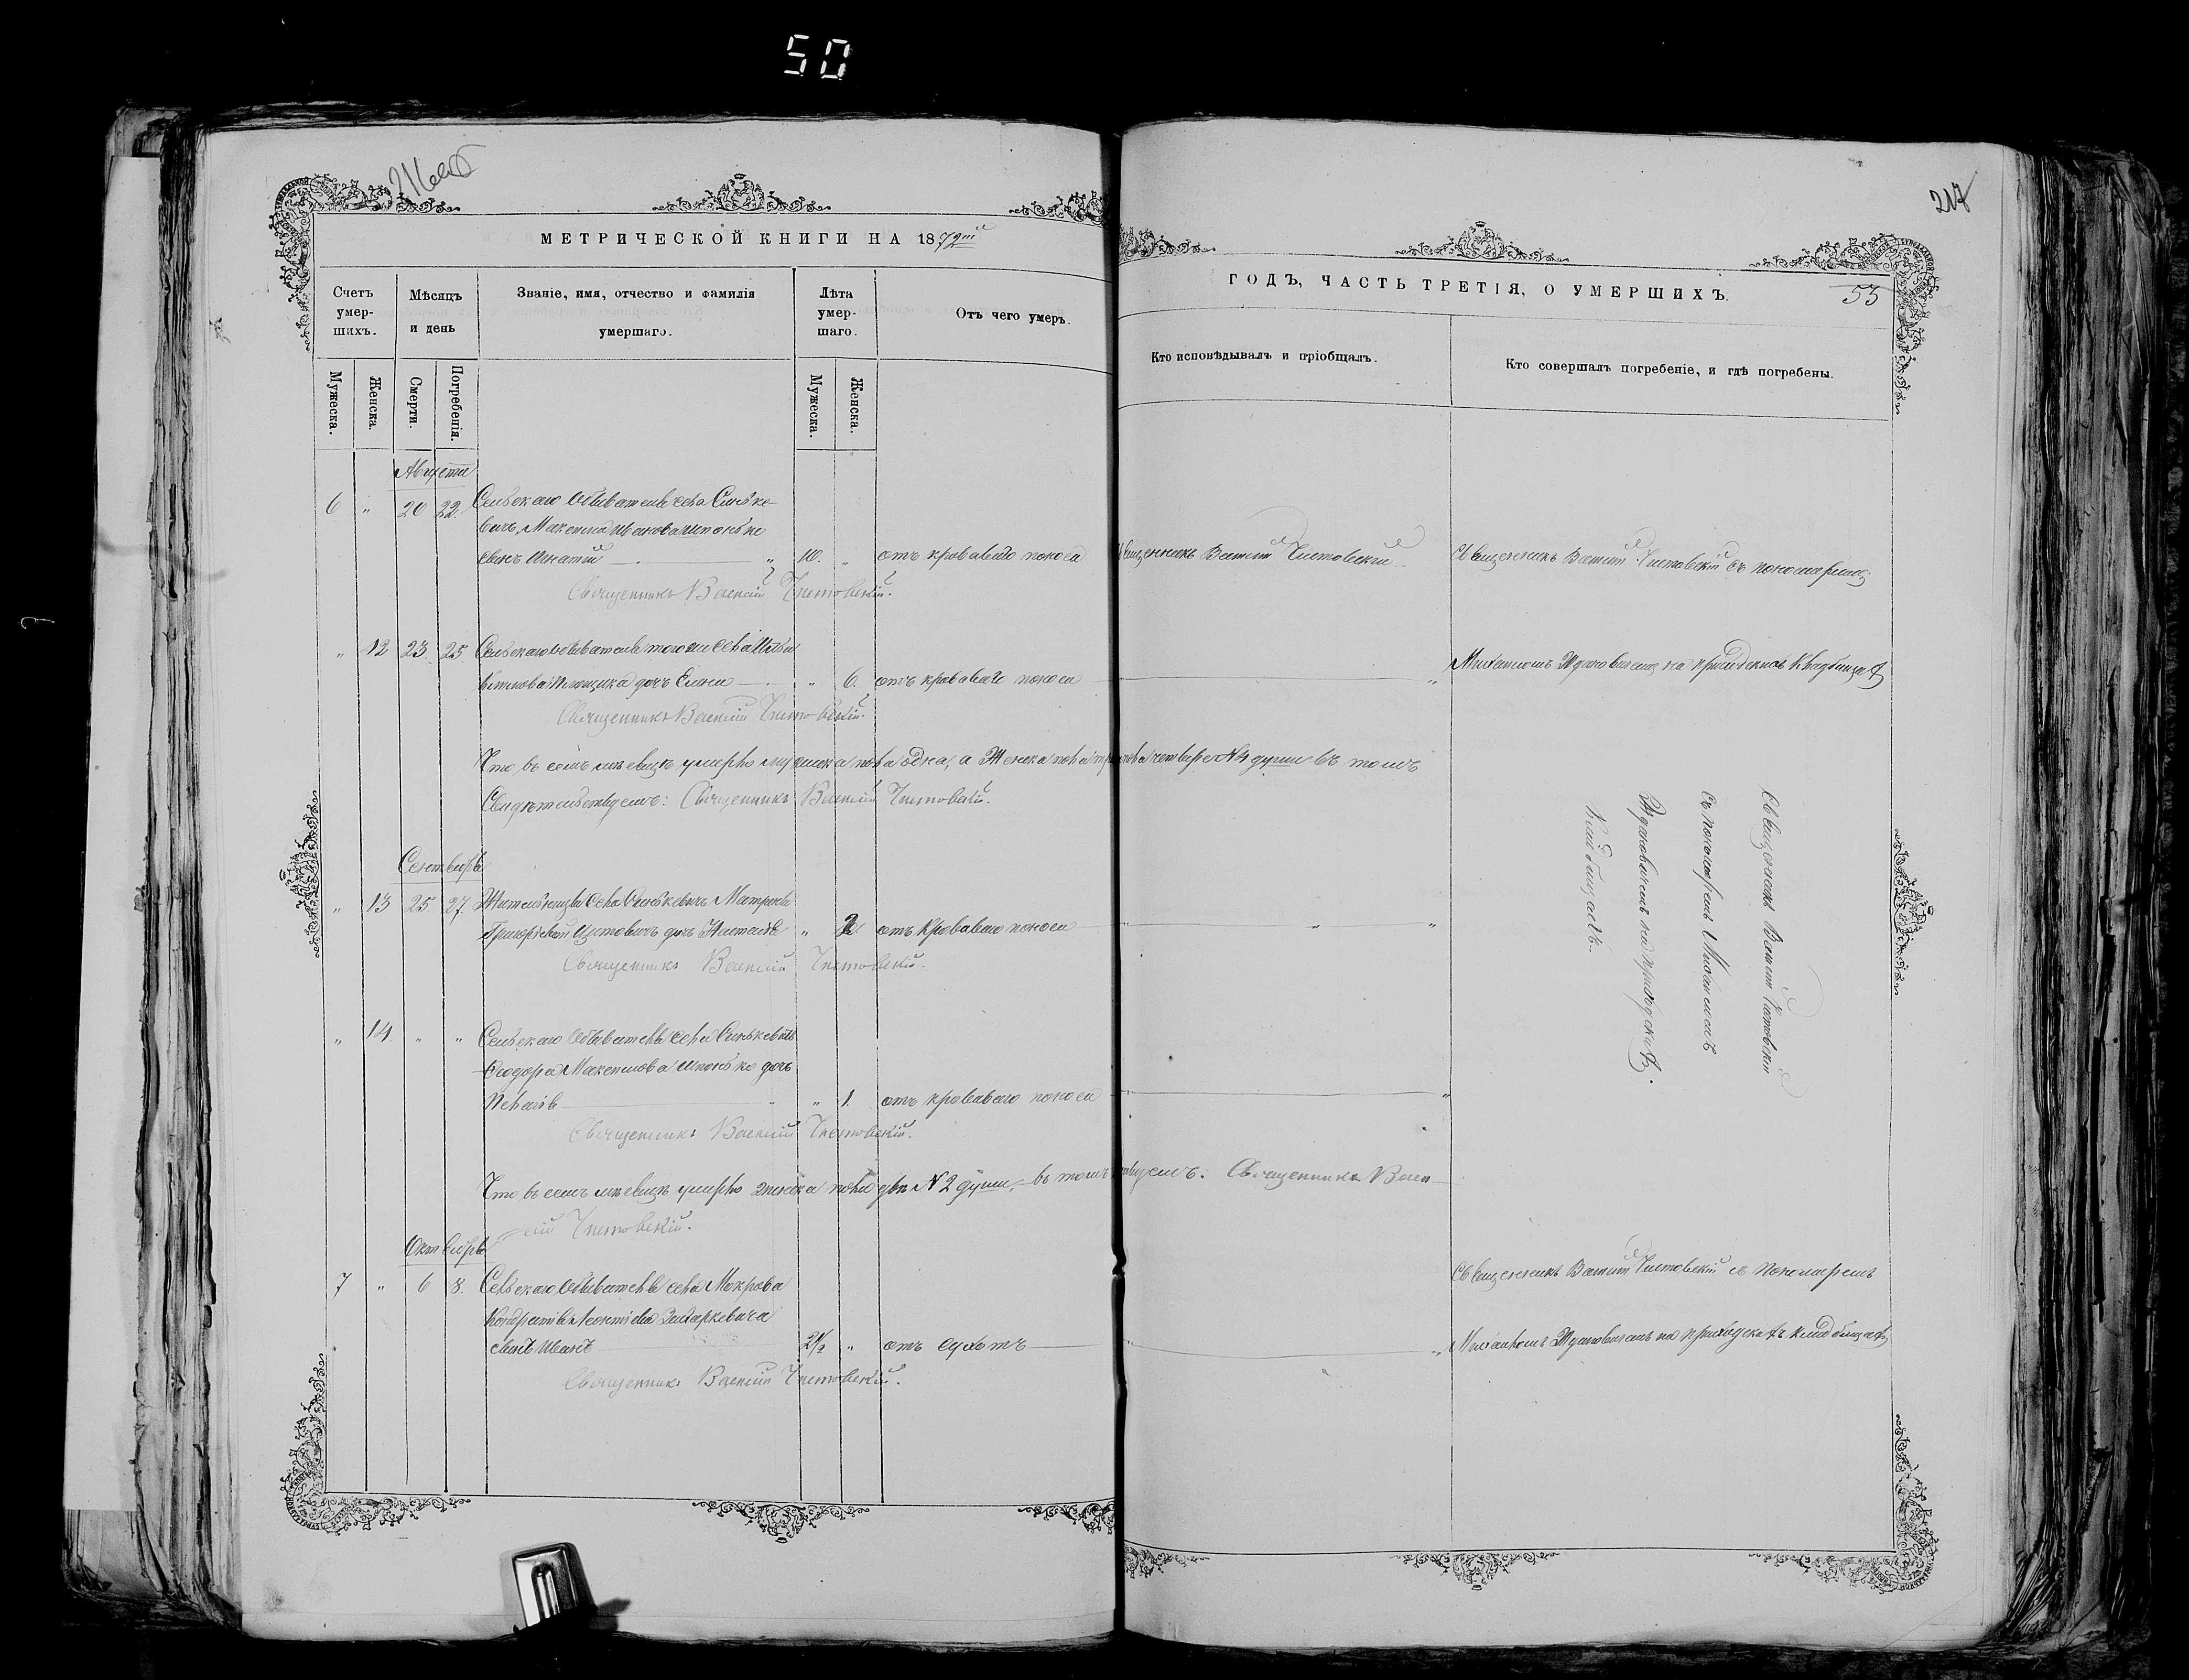 50
216об
217
МЕТРИЧЕСКОЙ КНИГИ НА 1872й
ГОДЪ, ЧАСТЬ ТРЕТІЯ, О УМЕРШИХЪ.
53
Счетъ умер-шихъ.
Мѣсяцъ и день
Званіе, имя, отчество и фамилія умершаго.
Лѣта умер-шаго.
Отъ чего умеръ.
Кто исповѣдывалъ и пріобщалъ.
Кто совершалъ погребеніе, и гдѣ погребены.
Мужеска.
Женска.
Смерти.
Погребенія.
Мужеска.
Женска.
Августа
6 " 20 22. Сельскаго Обывателя села Синьке-
вичъ, Максима Иванова
сынъ Игнатій " 10. " отъ кроваваго поноса Священникъ Василій Чистовскій Священникъ Василій Чистовскій съ пономаремъ
Священникъ Василій Чистовскій.
" 12 23 25 Сельскаго обывателя того же села
дочь " 6. отъ кроваваго поноса " Михаиломъ Ждановичемъ на приходскомъ кладбищѣ
Священникъ Василій Чистовскій.
Что въ семъ мѣсяцѣ умерло мужеска пола одна, а Женска пола три четыре №4 души въ томъ
Свидѣтельствуемъ: Священникъ Василій Чистовскій.
Священникъ Василій Чистовскій
съ пономаремъ Михаиломъ
Ждановичемъ на приходскомъ
кладбищѣ.
Сентября
" 13 25. 27. Жительницы села Синькевичъ Матроны
дочь Наталія " 2. отъ Кроваваго поноса " " "
Священникъ Василій Чистовскій.
" 14 " " Сельскаго Обывателя села Синькевичъ
Ѳеодора Максимова дочь
Пелагія " " 1. отъ кроваваго поноса "
Священникъ Василій Чистовскій.
Что въ семъ мѣсяцѣ умерло женска пола двѣ №2 души, въ томъ Священникъ Васи-
лій Чистовскій.
Октября
7 " 6 8. Сельскаго Обывателя села Мокрова
Кондратія Леонтіева
сынъ Иванъ 2½ " отъ сухотъ " Священникъ Василій Чистовскій съ Пономаремъ
Михаиломъ Ждановичемъ на приходскомъ кладбищѣ
Священникъ Василій Чистовскій.